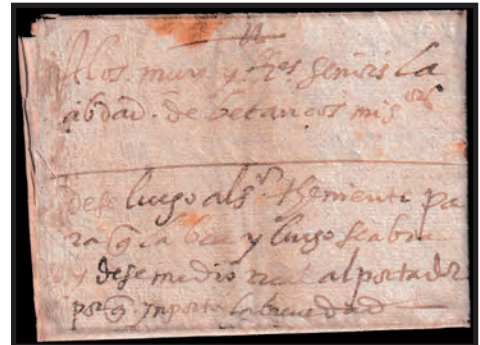 A los muy y Res señores la
çibdad. de betanços mis sres
dese luego al sr. theniente pa
ra q la bea y luego se abra
y dese medio real al portador
por q ynporta la breuedad